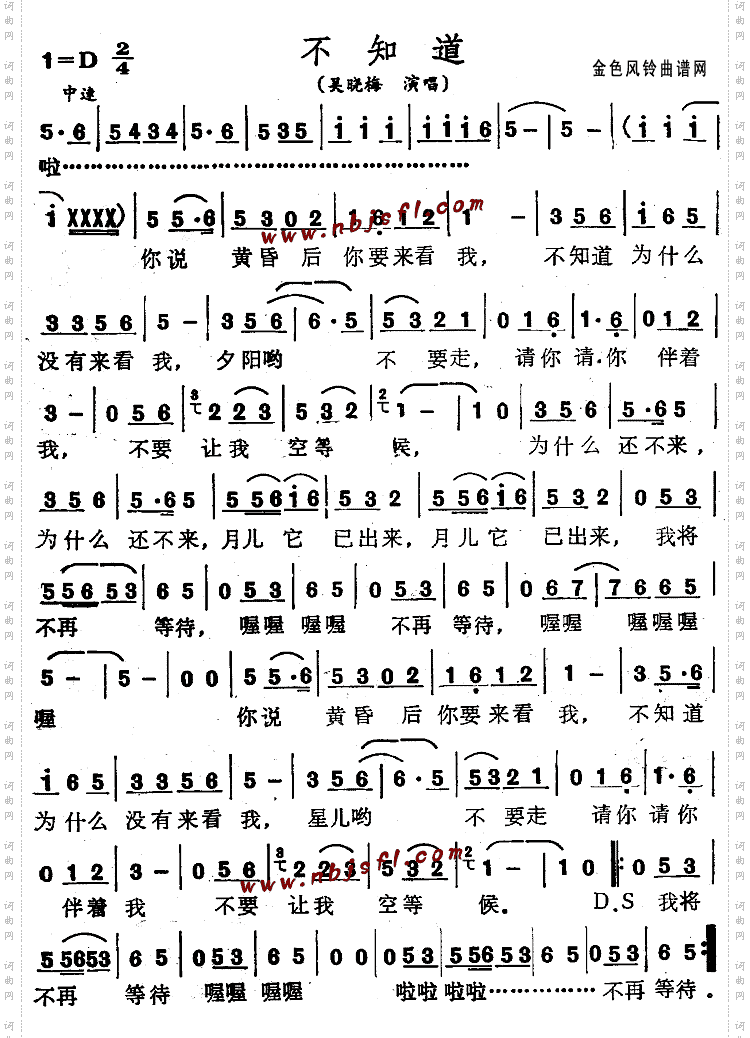 不知道
1=D 2/4
中速
(吴晓梅 演唱)
金色风铃曲谱网
5·6 | 5434 | 5·6 | 535 | i i i | i i i 6 | 5 - | 5 - | ( i i i |
啦…………………………………………
i XXXX) | 5 5·6 | 5302 | 1612 | 1 - | 356 | i65 |
你说 黄昏 后你要来看 我, 不知道 为什么
www.nbjsfl.com
3356 | 5 - | 356 | 6·5 | 5321 | 016 | 1·6 | 012 |
没有来看 我, 夕阳哟 不 要走, 请你 请·你 伴着
3 - | 056 | 3 223 | 532 | 2 1 - | 10 | 356 | 5·65 |
我, 不要 让我 空等 候, 为什么 还不来,
356 | 5·65 | 556i6 | 532 | 556i6 | 532 | 053 |
为什么 还不来, 月儿 它 已出来, 月儿它 已出来, 我将
55653 | 65 | 053 | 65 | 053 | 65 | 067 | 7665 |
不再 等待, 喔喔 喔喔 不再 等待, 喔喔 喔喔喔
5 - | 5 - | 00 | 55·6 | 5302 | 1612 | 1 - | 35·6 |
喔 你说 黄昏 后你要来看 我, 不知道
i65 | 3356 | 5 - | 356 | 6·5 | 5321 | 016 | 1·6 |
为什么 没有来看 我, 星儿哟 不 要走 请你 请你
012 | 3 - | 056 | 3 223 | 532 | 2 1 - | 10 |: 053 |
www.nbjsfl.com
伴着 我 不要 让我 空等 候. D.S 我将
55653 | 65 | 053 | 65 | 00 | 053 | 55653 | 65 | 053 | 65 :|
不再 等待 喔喔 喔喔 啦啦 啦啦…………… 不再 等待.
词曲网